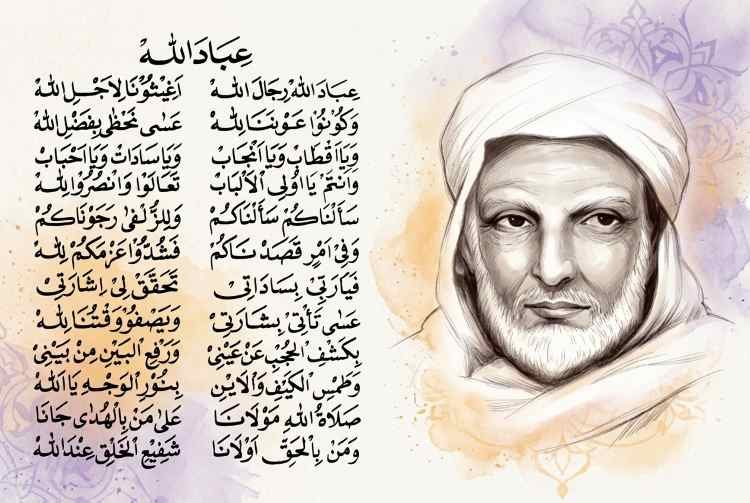 عِبَادَ اللهْ
عِبَادَ اللهْ رِجَالَ اللهْ اَغِيْثُوْنَا لِاَجْلِ اللهْ
وَكُوْنُوْا عَوْنَنَا لِلهْ عَسٰى نَحْظٰى بِفَضْلِ اللهْ
وَيَا اَقْطَابْ وَيَا اَنْجَابْ وَيَا سَادَاتْ وَيَا اَحْبَابْ
وَاَنْتُمْ يَا اُولِى الْاَلْبَابْ تَعَالَوْا وَانْصُرُوْا لِلهْ
سَأَلْنَاكُمْ سَأَلْنَاكُمْ وَلِلزُّلْفٰى رَجَوْنَاكُمْ
وَفِيْ اَمْرٍ قَصَدْنَاكُمْ فَشُدُّوْا عَزْمَكُمْ لِلهْ
فَيَارَبِّيْ بِسَادَاتِيْ تَحَقَّقْ لِيْ اِشَارَتِيْ
عَسٰى تَأْتِيْ بِشَارَتِيْ وَيَصْفُوْ وَقْتُنَا لِلهْ
بِكَشْفِ الْحُجْبِ عَنْ عَيْنِيْ وَرَفْعِ الْبَيْنِ مِنْ بَيْنِيْ
وَطَمْسِ الْكَيْفِ وَالْاَيْنِ بِنُوْرِ الْوَجْهِ يَا اَللهْ
صَلَاةُ اللهِ مَوْلَانَا عَلٰى مَنْ بِالْهُدٰى جَانَا
وَمَنْ بِالْحَقِّ اَوْلَانَا شَفِيْعِ الْخَلْقِ عِنْدَ اللهْ